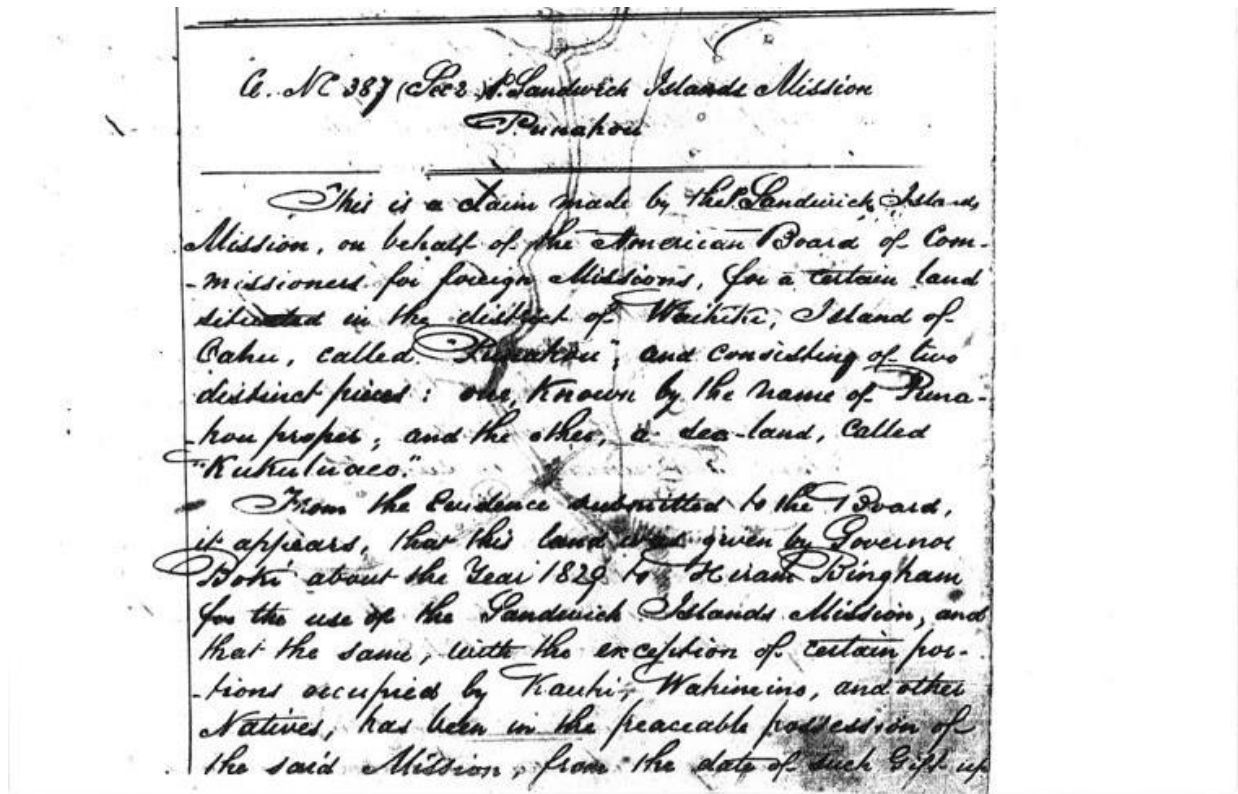 C. No 387 (Sec 2) P. Sandwich Islands Mission
Punahou
This is a claim made by the P. Sandwich Islands
Mission, on behalf of the American Board of Com-
-missioners for foreign Missions, for a certain land
situated in the district of Waikiki, Island of
Oahu, called "Punahou", and consisting of two
distinct pieces: one, known by the name of Puna-
-hou proper; and the other, a sea-land, called
"Kukuluaeo."
From the Evidence submitted to the Board,
it appears, that this land was given by Governor
Boki about the Year 1829 to Hiram Bingham
for the use of the Sandwich Islands Mission, and
that the same, with the exception of certain por-
-tions occupied by Kauhi, Wahineino, and other
Natives, has been in the peaceable possession of
the said Mission, from the date of such Gift up